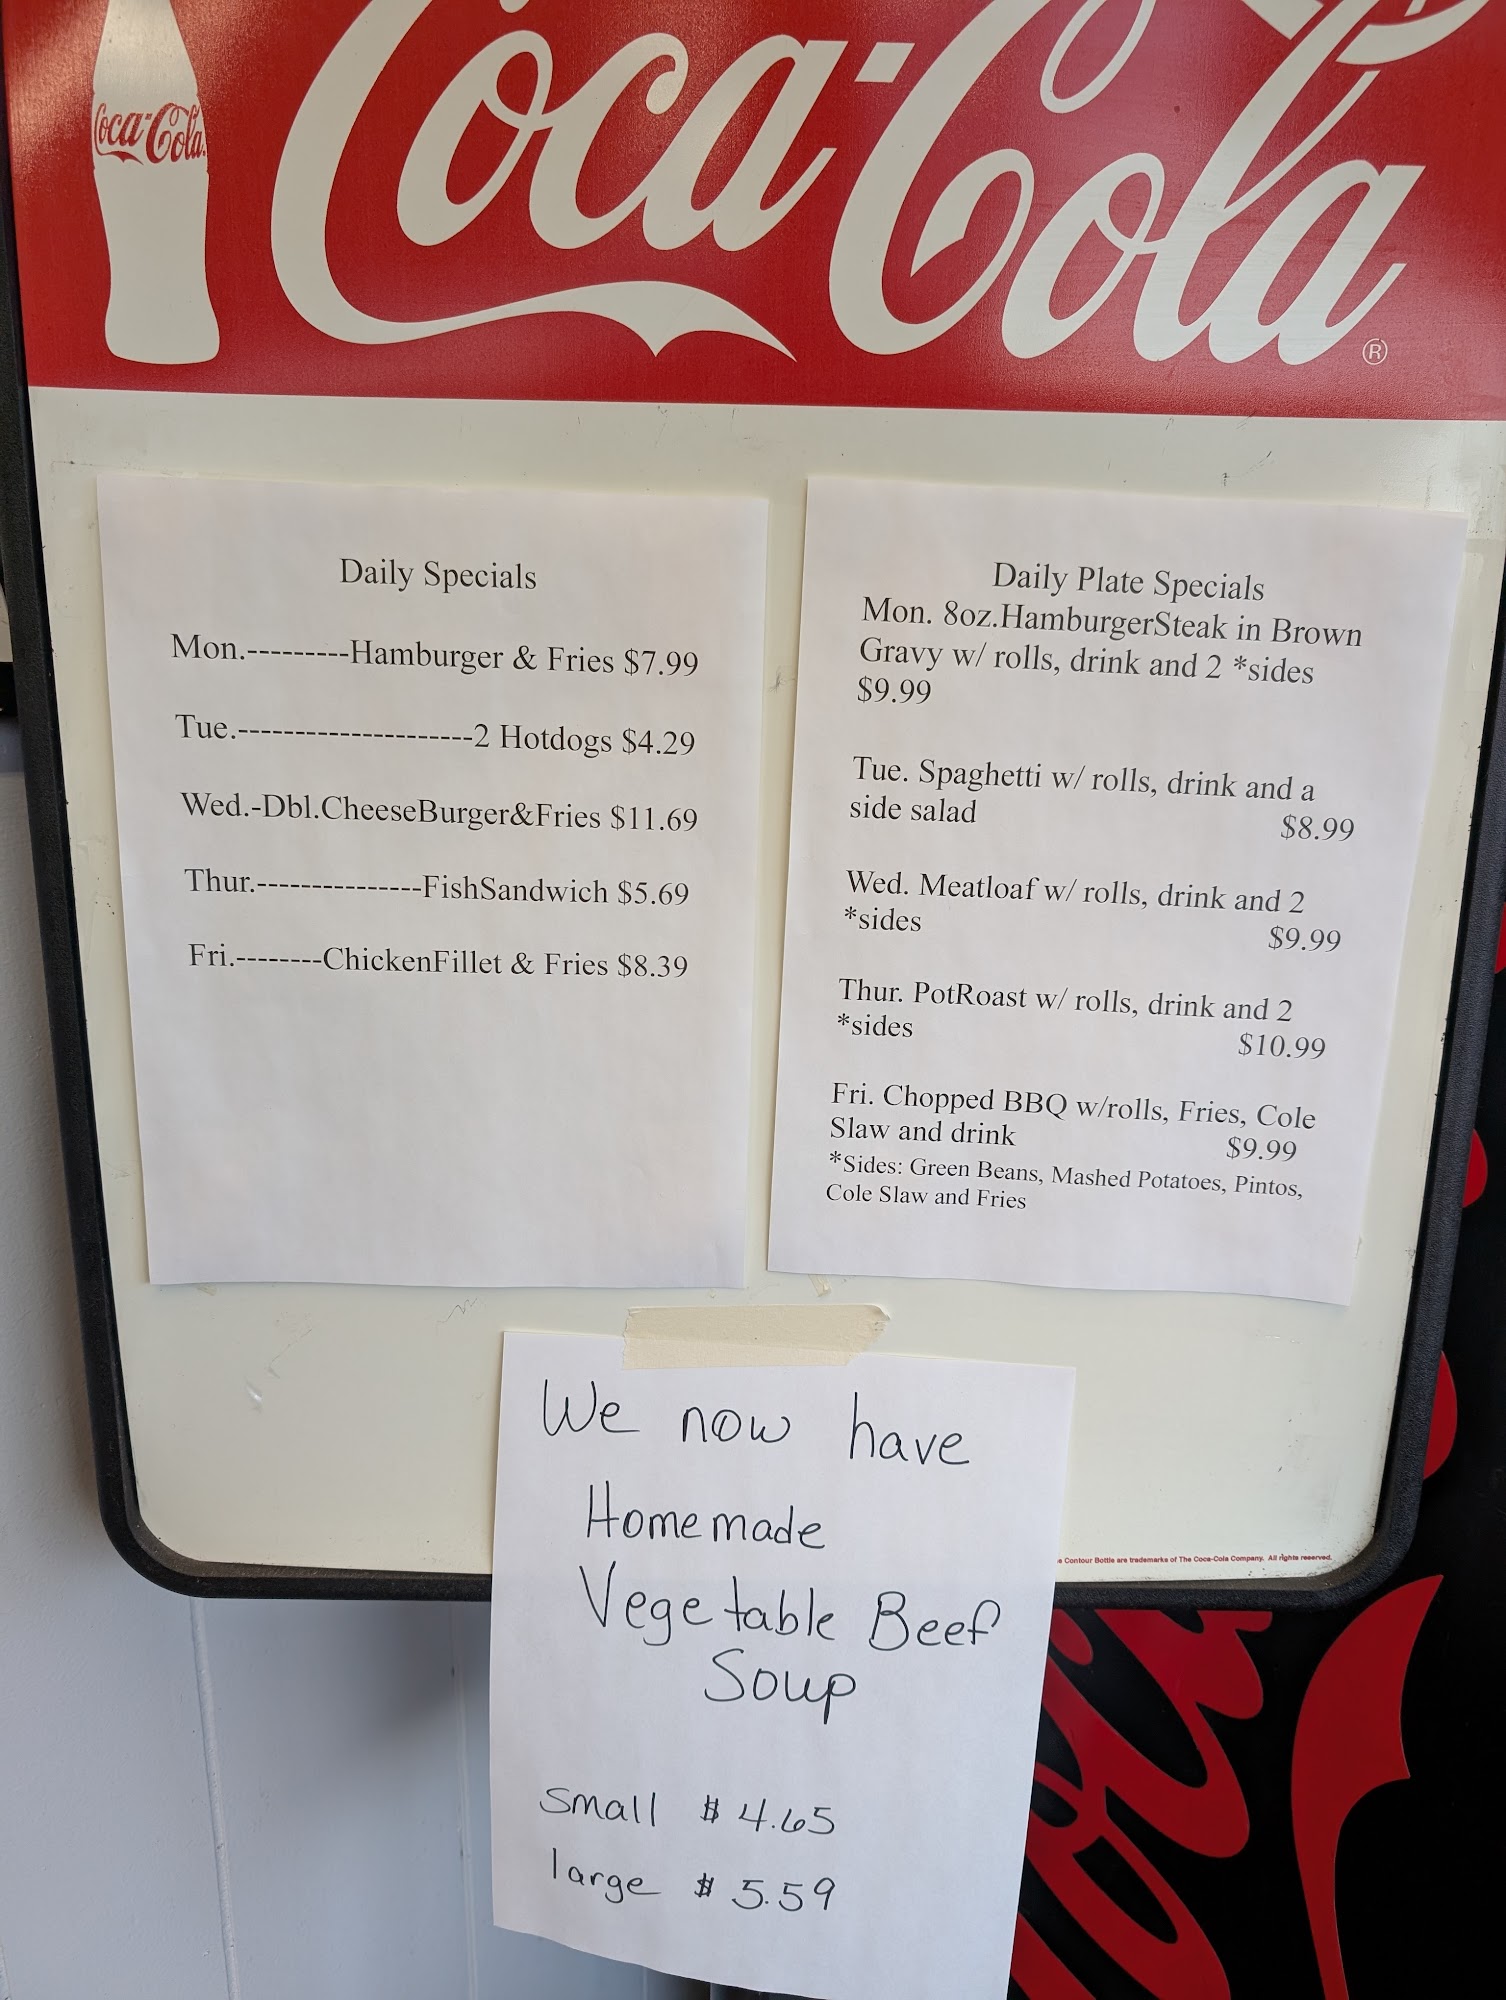 Coca-Cola
Coca-Cola®
Daily Specials
Mon.---------Hamburger & Fries $7.99
Tue.---------------------2 Hotdogs $4.29
Wed.-Dbl.CheeseBurger&Fries $11.69
Thur.---------------FishSandwich $5.69
Fri.--------ChickenFillet & Fries $8.39
Daily Plate Specials
Mon. 8oz.HamburgerSteak in Brown
Gravy w/ rolls, drink and 2 *sides
$9.99
Tue. Spaghetti w/ rolls, drink and a
side salad $8.99
Wed. Meatloaf w/ rolls, drink and 2
*sides $9.99
Thur. PotRoast w/ rolls, drink and 2
*sides $10.99
Fri. Chopped BBQ w/rolls, Fries, Cole
Slaw and drink $9.99
*Sides: Green Beans, Mashed Potatoes, Pintos,
Cole Slaw and Fries
We now have
Homemade
Vegetable Beef
Soup
small $4.65
large $5.59
Contour Bottle are trademarks of The Coca-Cola Company. All rights reserved.